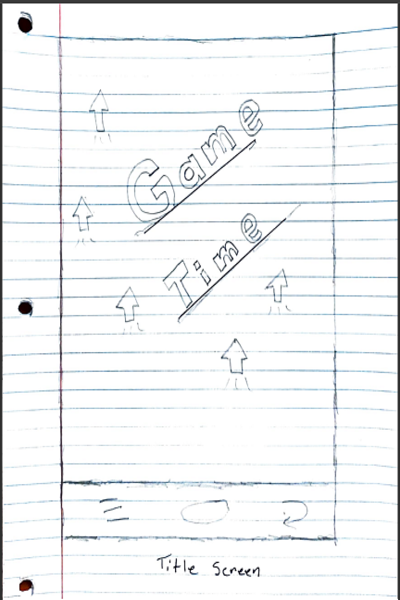 Game
Time
Title Screen